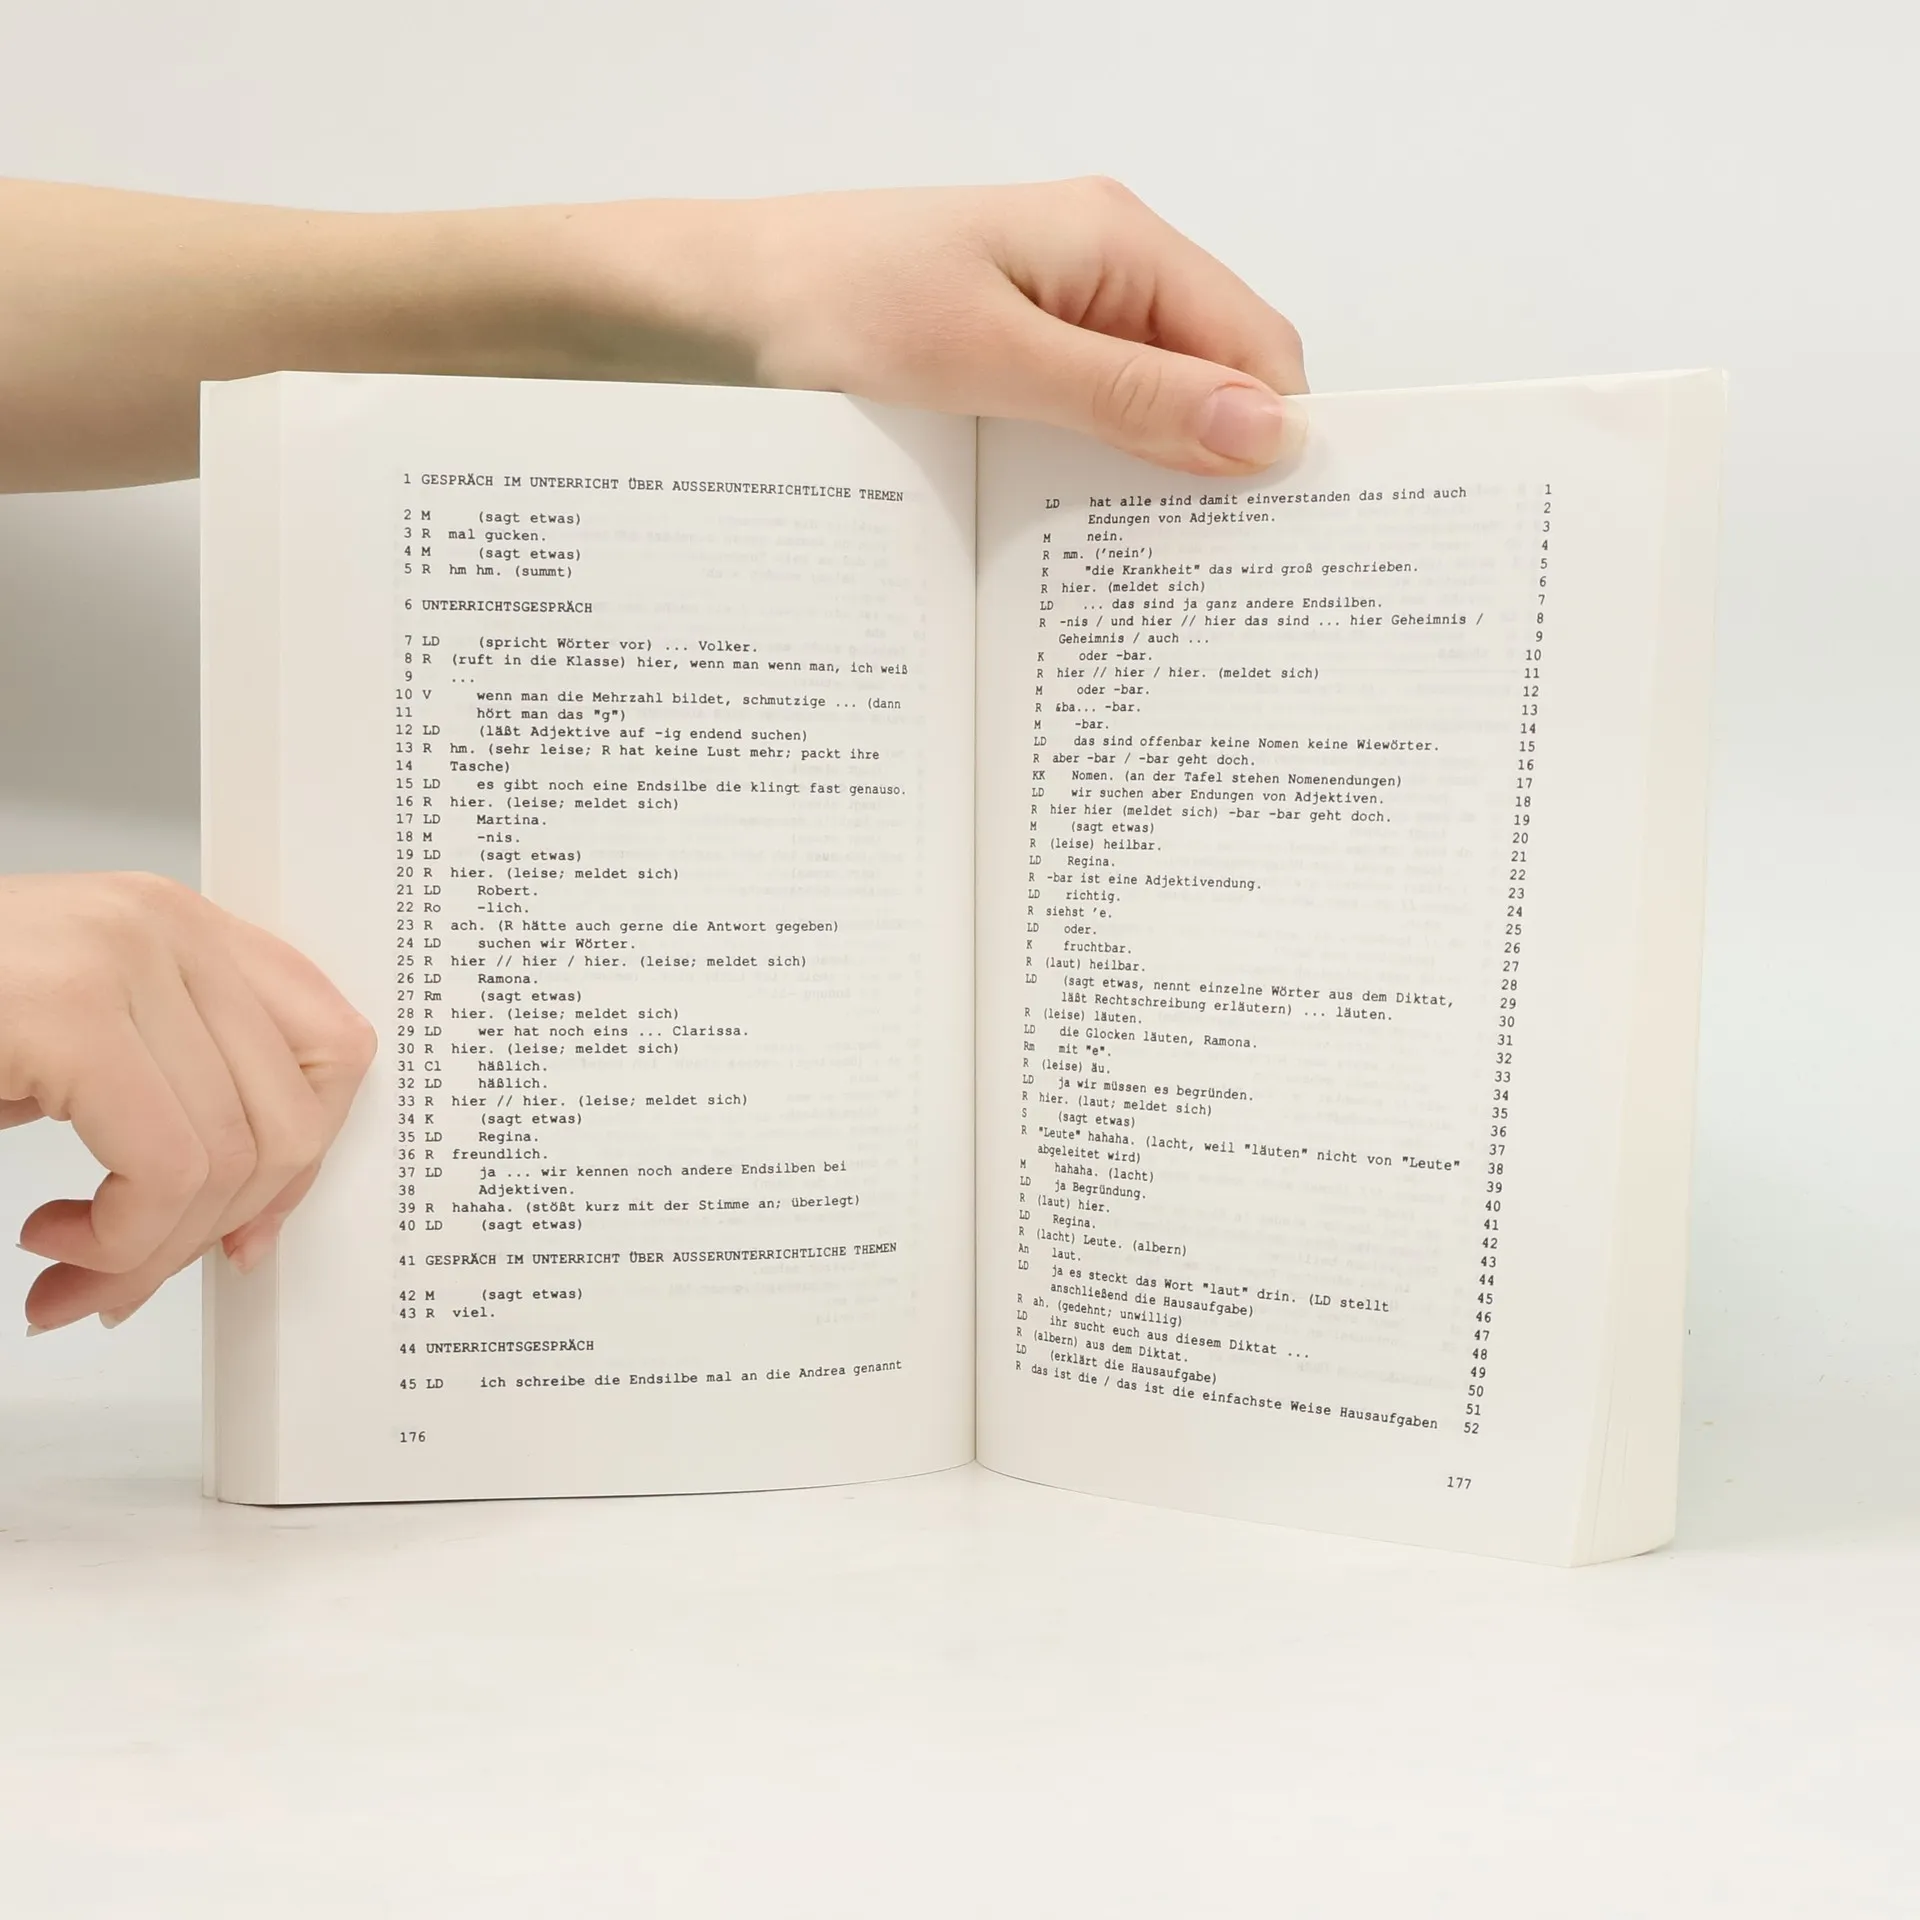 1 GESPRÄCH IM UNTERRICHT ÜBER AUSSERUNTERRICHTLICHE THEMEN
2 M (sagt etwas)
3 R mal gucken.
4 M (sagt etwas)
5 R hm hm. (summt)
6 UNTERRICHTSGESPRÄCH
7 LD (spricht Wörter vor) ... Volker.
8 R (ruft in die Klasse) hier, wenn man wenn man, ich weiß
9 ...
10 V wenn man die Mehrzahl bildet, schmutzige ... (dann
11 hört man das "g")
12 LD (läßt Adjektive auf -ig endend suchen)
13 R hm. (sehr leise; R hat keine Lust mehr; packt ihre
14 Tasche)
15 LD es gibt noch eine Endsilbe die klingt fast genauso.
16 R hier. (leise; meldet sich)
17 LD Martina.
18 M -nis.
19 LD (sagt etwas)
20 R hier. (leise; meldet sich)
21 LD Robert.
22 Ro -lich.
23 R ach. (R hätte auch gerne die Antwort gegeben)
24 LD suchen wir Wörter.
25 R hier // hier / hier. (leise; meldet sich)
26 LD Ramona.
27 Rm (sagt etwas)
28 R hier. (leise; meldet sich)
29 LD wer hat noch eins ... Clarissa.
30 R hier. (leise; meldet sich)
31 Cl häßlich.
32 LD häßlich.
33 R hier // hier. (leise; meldet sich)
34 K (sagt etwas)
35 LD Regina.
36 R freundlich.
37 LD ja ... wir kennen noch andere Endsilben bei
38 Adjektiven.
39 R hahaha. (stößt kurz mit der Stimme an; überlegt)
40 LD (sagt etwas)
41 GESPRÄCH IM UNTERRICHT ÜBER AUSSERUNTERRICHTLICHE THEMEN
42 M (sagt etwas)
43 R viel.
44 UNTERRICHTSGESPRÄCH
45 LD ich schreibe die Endsilbe mal an die Andrea genannt
176
LD hat alle sind damit einverstanden das sind auch 1
Endungen von Adjektiven. 2
M nein. 3
R mm. ('nein') 4
K "die Krankheit" das wird groß geschrieben. 5
R hier. (meldet sich) 6
LD ... das sind ja ganz andere Endsilben. 7
R -nis / und hier // hier das sind ... hier Geheimnis / 8
Geheimnis / auch ... 9
K oder -bar. 10
R hier // hier / hier. (meldet sich) 11
M oder -bar. 12
R &ba... -bar. 13
M -bar. 14
LD das sind offenbar keine Nomen keine Wiewörter. 15
R aber -bar / -bar geht doch. 16
KK Nomen. (an der Tafel stehen Nomenendungen) 17
LD wir suchen aber Endungen von Adjektiven. 18
R hier hier (meldet sich) -bar -bar geht doch. 19
M (sagt etwas) 20
R (leise) heilbar. 21
LD Regina. 22
R -bar ist eine Adjektivendung. 23
LD richtig. 24
R siehst 'e. 25
LD oder. 26
K fruchtbar. 27
R (laut) heilbar. 28
LD (sagt etwas, nennt einzelne Wörter aus dem Diktat, 29
läßt Rechtschreibung erläutern) ... läuten. 30
R (leise) läuten. 31
LD die Glocken läuten, Ramona. 32
Rm mit "e". 33
R (leise) äu. 34
LD ja wir müssen es begründen. 35
R hier. (laut; meldet sich) 36
S (sagt etwas) 37
R "Leute" hahaha. (lacht, weil "läuten" nicht von "Leute" 38
abgeleitet wird) 39
M hahaha. (lacht) 40
LD ja Begründung. 41
R (laut) hier. 42
LD Regina. 43
R (lacht) Leute. (albern) 44
An laut. 45
LD ja es steckt das Wort "laut" drin. (LD stellt 46
anschließend die Hausaufgabe) 47
R ah. (gedehnt; unwillig) 48
LD ihr sucht euch aus diesem Diktat ... 49
R (albern) aus dem Diktat. 50
LD (erklärt die Hausaufgabe) 51
R das ist die / das ist die einfachste Weise Hausaufgaben 52
177